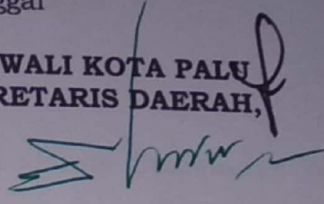 WALI KOTA PALU
RETARIS DAERAH,